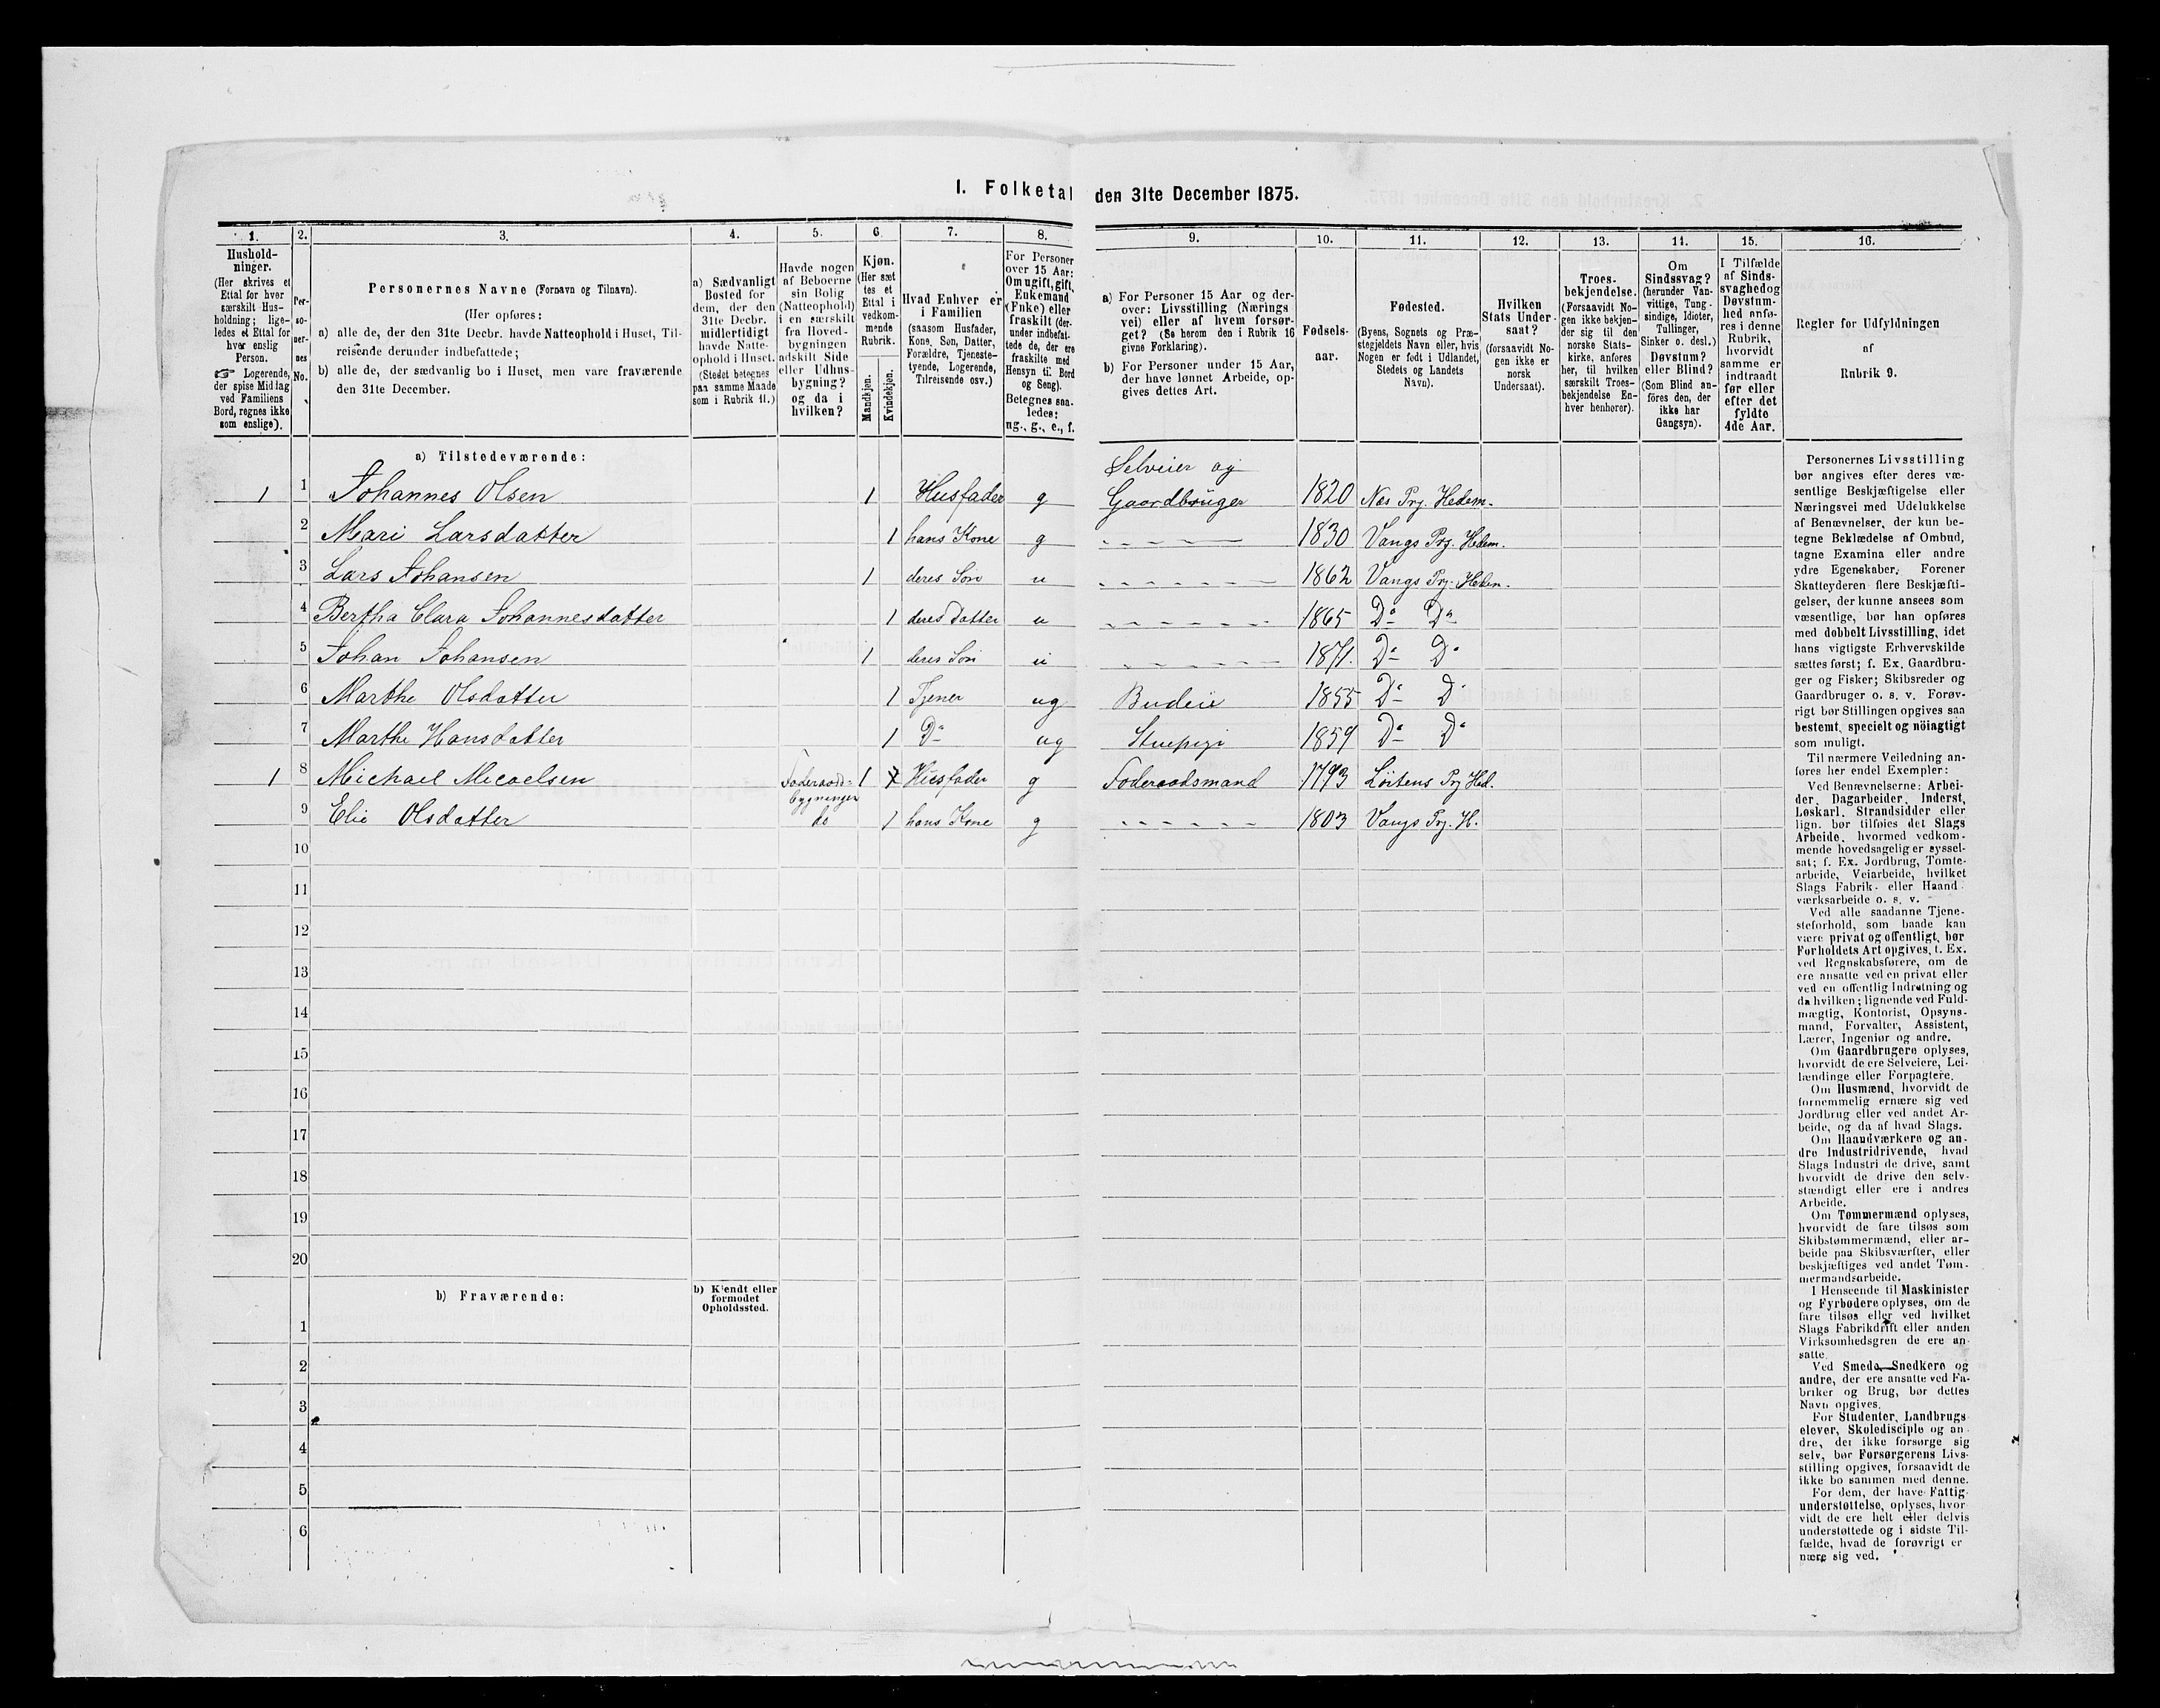 I. Folketal den 31te December 1875.
1. 2. 3. 4. 5. 6. 7. 8. 9. 10. 11. 12. 13. 14. 15. 16.
Husholdninger.
(Her skrives et
Ettal for hver
særskilt Hus-
holdning; lige-
ledes et Ettal for
hver enslig
Person.
☞ Logerende,
der spise Middag
ved Familiens
Bord, regnes ikke
som enslige).
Per-
so-
ner-
nes
No.
Personernes Navne (Fornavn og Tilnavn).
(Her opføres:
a) alle de, der den 31te Decbr. havde Natteophold i Huset, Til-
reisende derunder indbefattede;
b) alle de, der sædvanlig bo i Huset, men vare fraværende
den 31te December.
a) Sædvanligt
Bosted for
dem, der den
31te Decbr.
midlertidigt
havde Natte-
ophold i Huset.
(Stedet betegnes
paa samme Maade
som i Rubrik 11.)
Havde nogen
af Beboerne
sin Bolig
(Natteophold)
i en særskilt
fra Hoved-
bygningen
adskilt Side
eller Udhus-
bygning?
og da i
hvilken?
Kjøn.
(Her sæt
tes et
Ettal i
vedkom-
mende
Rubrik.
Mandkjøn.
Kvindekjøn.
Hvad Enhver er
i Familien
(saasom Husfader,
Kone, Søn, Datter,
Forældre, Tjeneste-
tyende, Logerende,
Tilreisende osv.)
For Personer
over 15 Aar:
Om ugift, gift,
Enkemand
(Enke) eller
fraskilt (der-
under indbefat-
tede de, der ere
fraskilte med
Hensyn til Bord
og Seng).
Betegnes saa-
ledes:
ug., g., e., f.
a) For Personer 15 Aar og der-
over: Livsstilling (Nærings
vei) eller af hvem forsør-
get? (Se herom den i Rubrik 16
givne Forklaring).
b) For Personer under 15 Aar,
der have lønnet Arbeide, op-
gives dettes Art.
Fødsels-
aar.
Fødested.
(Byens, Sognets og Præ-
stegjeldets Navn eller, hvis
Nogen er født i Udlandet,
Stedets og Landets
Navn).
Hvilken
Stats Under-
saat?
(forsaavidt No-
gen ikke er
norsk
Undersaat).
Troes-
bekjendelse.
(Forsaavidt No-
gen ikke bekjen-
der sig til den
norske Stats-
kirke, anføres
her, til hvilken
særskilt Troes-
bekjendelse En-
hver henhører).
Om
Sindssvag?
(herunder Van-
vittige, Tung-
sindige, Idioter,
Tullinger,
Sinker o. desl.)
Døvstum?
eller Blind?
(Som Blind an-
föres den, der
ikke har
Gangsyn).
I Tilfælde
af Sinds-
svaghed og
Døvstum-
hed anfø-
res i denne
Rubrik,
hvorvidt
samme er
indtraadt
før eller
efter det
fyldte
4de Aar.
Regler for Udfyldningen
af
Rubrik 9.
a) Tilstedeværende:
Selveier og
1 1 Johannes Olsen 1 Husfader g Gaardbruger 1820 Nes Prg. Hedem.
2 Mari Larsdatter 1 hans Kone g 1830 Vangs Prg. Hedem.
3 Lars Johansen 1 deres Søn u 1862 Vangs Prg. Hedem.
4 Bertha Clara Johannesdatter 1 deres Datter u 1865 Do Do
5 Johan Johansen 1 deres Søn u 1871. Do Do
6 Marthe Olsdatter 1 Tjener ug Budeie 1855 Do Do
7 Marthe Hansdatter 1 Do ug Stuepige 1859 Do Do
1 8 Michael Micaelsen Foderaads- 1 Husfader g Foderaadsmand 1793 Löitens Prg Hed.
bygningen
9 Elie Olsdatter do 1 hans Kone g 1803 Vangs Prg. H.
10
11
12
13
14
15
16
17
18
19
20
b) Fraværende:
b) Kjendt eller
formodet
Opholdssted.
1
2
3
4
5
6
Personernes Livsstilling
bør angives efter deres væ-
sentlige Beskjæftigelse eller
Næringsvei med Udelukkelse
af Benævnelser, der kun be-
tegne Beklædelse af Ombud,
tagne Examina eller andre
ydre Egenskaber. Forener
Skatteyderen flere Beskjæfti-
gelser, der kunne ansees som
væsentlige, bør han opføres
med dobbelt Livsstilling, idet
hans vigtigste Erhvervskilde
sættes først; f. Ex. Gaardbru-
ger og Fisker; Skibsreder og
Gaardbruger o. s. v. Forøv-
rigt bør Stillingen opgives saa
bestemt, specielt og nöiagtigt
som muligt.
Til nærmere Veiledning an-
føres her endel Exempler:
Ved Benævnelserne: Arbei-
der, Dagarbeider, Inderst,
Løskarl, Strandsidder eller
lign. bør tilføies det Slags
Arbeide, hvormed vedkom-
mende hovedsagelig er syssel-
sat; f. Ex. Jordbrug, Tomte-
arbeide, Veiarbeide, hvilket
Slags Fabrik- eller Haand-
værksarbeide o. s. v.
Ved alle saadanne Tjene-
steforhold, som baade kan
være privat og offentligt, bør
Forholdets Art opgives, t. Ex.
ved Regnskabsførere, om de
ere ansatte ved en privat eller
ved en offentlig Indretning og
da hvilken; lignende ved Fuld-
mægtig, Kontorist, Opsyns-
mand, Forvalter, Assistent,
Lærer, Ingeniør og andre.
Om Gaardbrugere oplyses,
hvorvidt de ere Selveiere, Lei-
lændinge eller Forpagtere.
Om Husmænd, hvorvidt de
fornemmelig ernære sig ved
Jordbrug eller ved andet Ar-
beide, og da af hvad Slags.
Om Haandværkere og an-
dre Industridrivende, hvad
Slags Industri de drive, samt
hvorvidt de drive den selv-
stændigt eller ere i andres
Arbeide.
Om Tømmermænd oplyses,
hvorvidt de fare tilsøs som
Skibstømmermænd, eller ar-
beide paa Skibsværfter, eller
beskjæftiges ved andet Tøm-
mermandsarbeide.
I Henseende til Maskinister
og Fyrbødere oplyses, om de
fare tilsøs eller ved hvilket
Slags Fabrikdrift eller anden
Virksomhedsgren de ere an-
satte.
Ved Smede, Snedkere og
andre, der ere ansatte ved Fa-
briker og Brug, bør dettes
Navn opgives.
For Studenter, Landbrugs
elever, Skoledisciple og an-
dre, der ikke forsørge sig
selv, bør Forsørgerens Livs-
stilling opgives, forsaavidt de
ikke bo sammen med denne.
For dem, der have Fattig-
understøttelse, oplyses, hvor-
vidt de ere helt eller delvis
understøttede og i sidste Til-
fælde, hvad de forøvrigt er
nære sig ved.